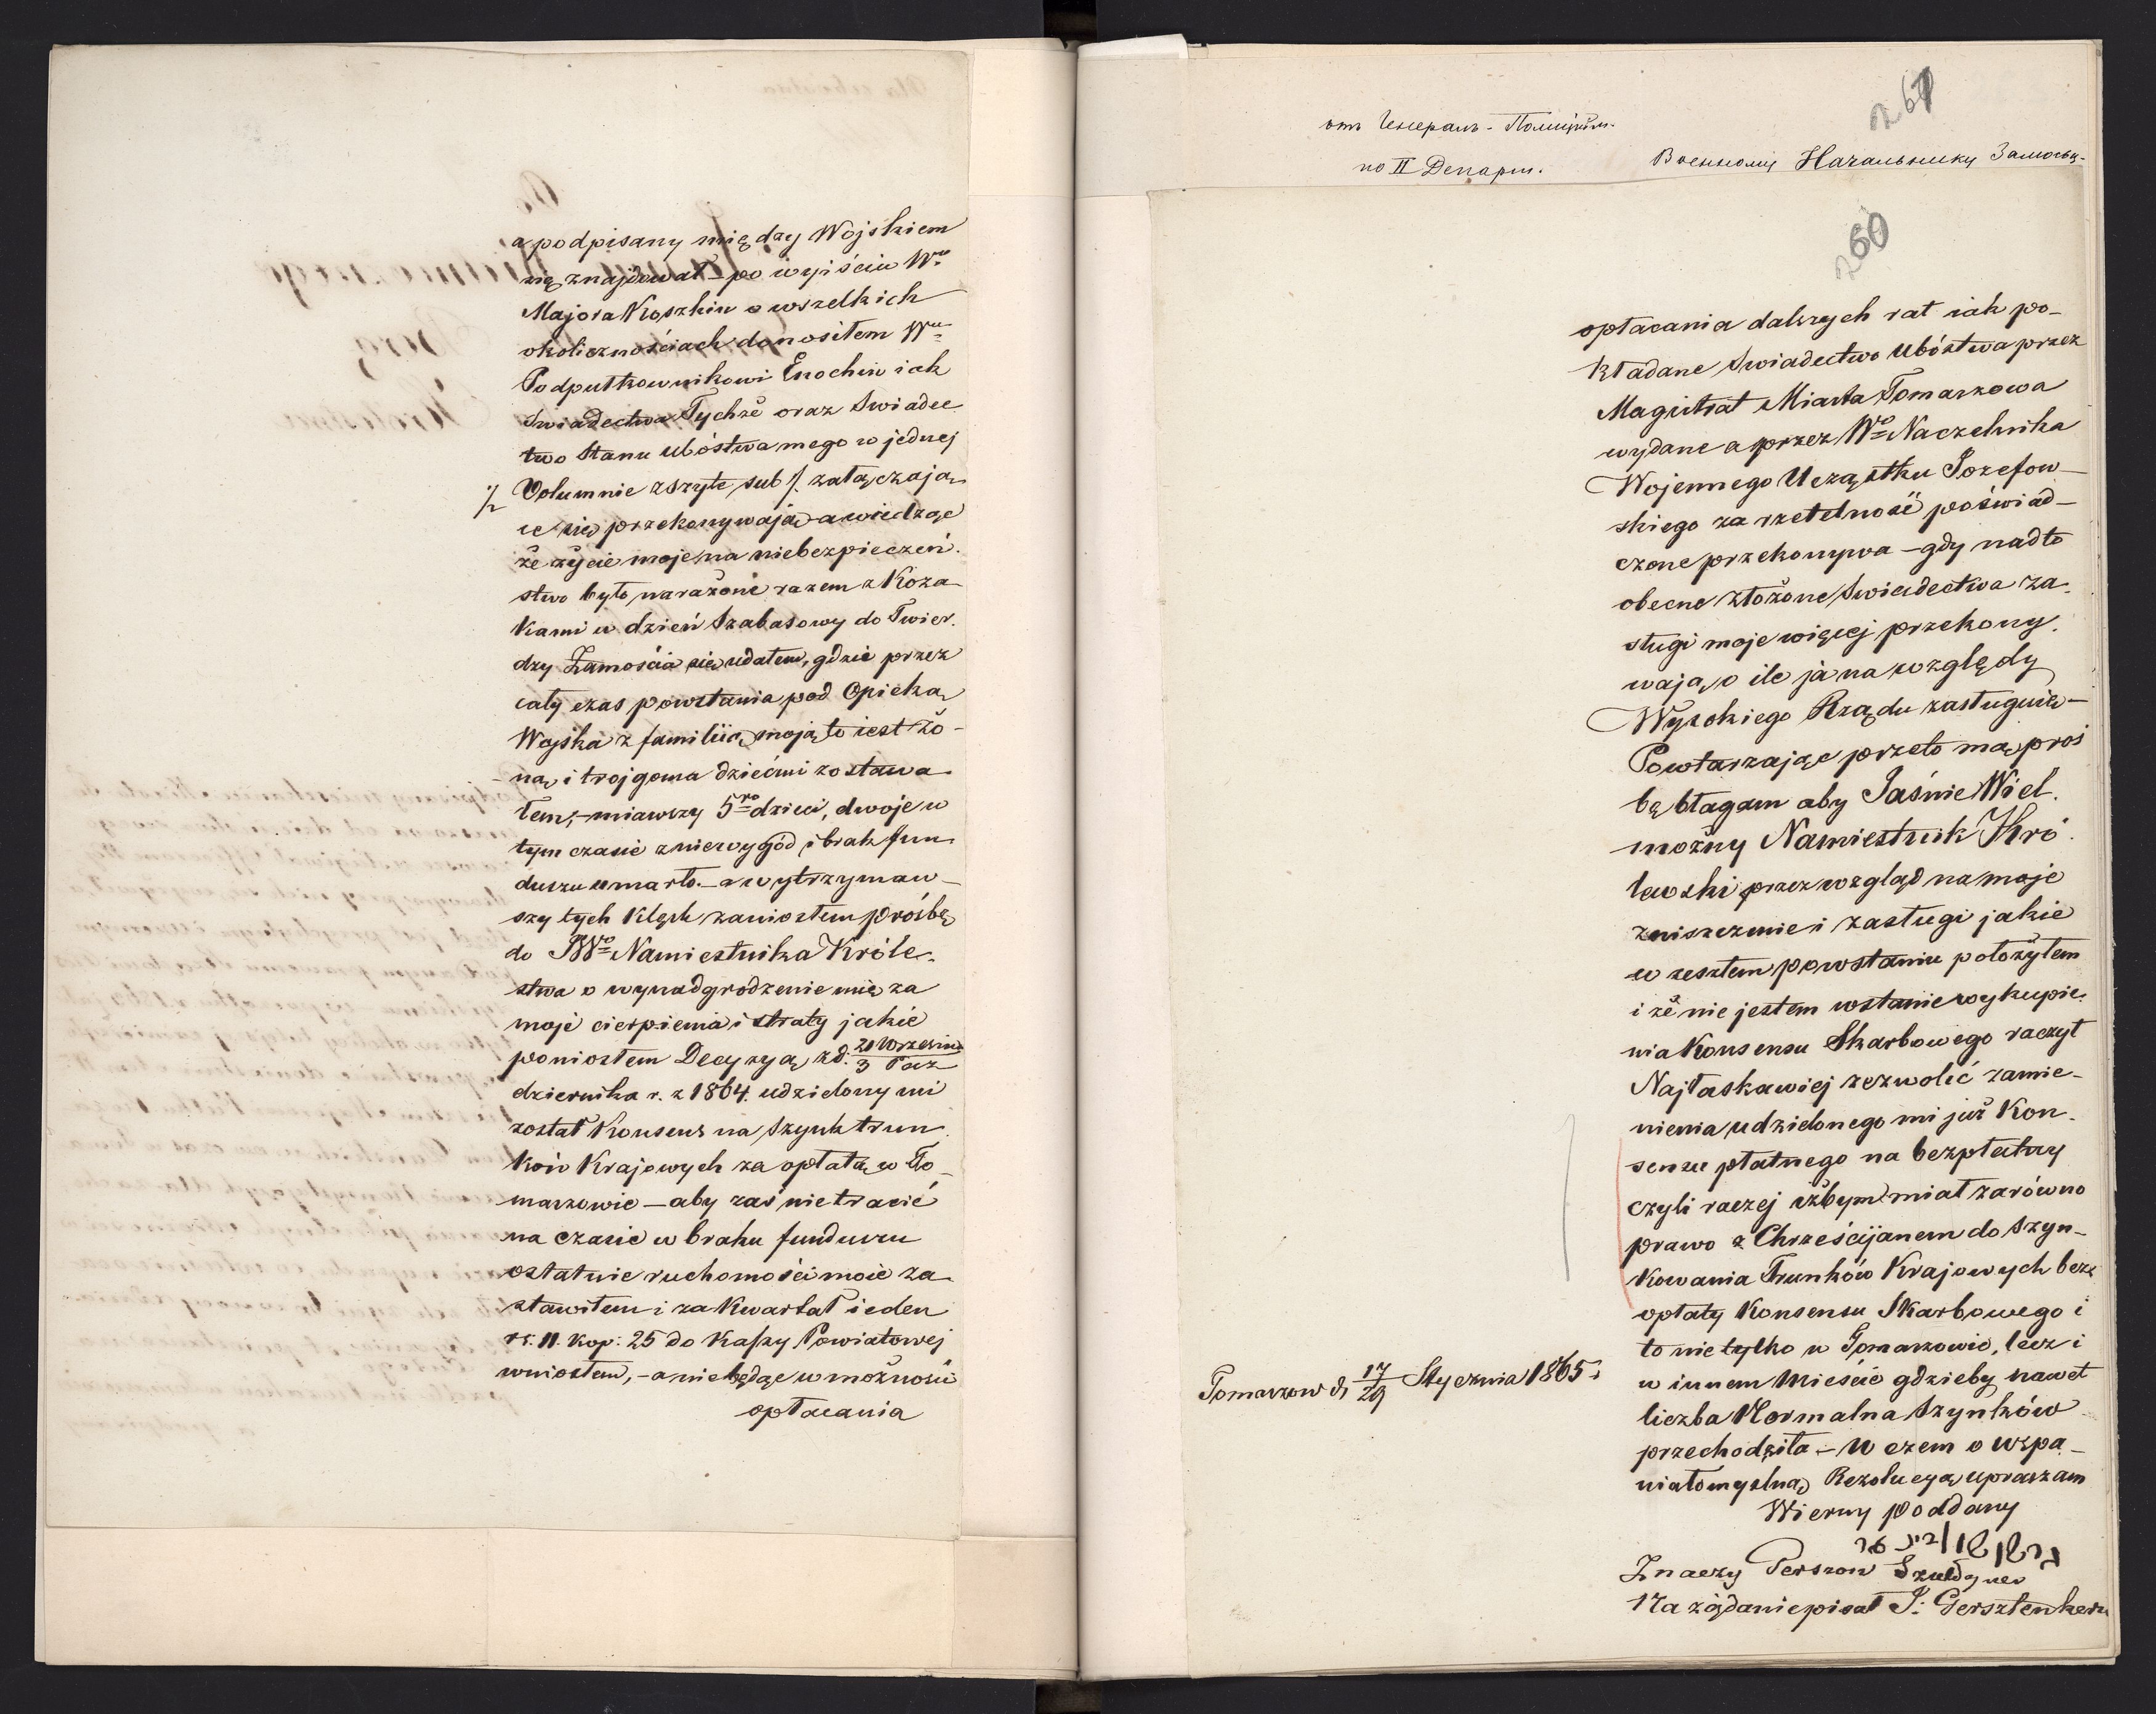 a podpisany między Wojskiem
się znajdował – po wyiściu Wo
Majora Koszkin o wszelkich
okolicznościach donosiłem Wu
Podpułkownikowi Enochin iak
Swiadectwa Tychże oraz Swiadec
two Stanu Ubóstwa mego w jednej
% Volumnie zszyte sub /. załączają
ce się przekonywają – a wiedząc
że życie moje na niebezpieczeń.
stwo było narażone razem z Koza
Kami w dzień Szabasowy do Twier.
dzy Zamościa się udałem, gdzie przez
cały czas powstania pod Opieką
Wojska z familiią moją to iest żo-
ną i trojgoma dziećmi zostawa
łem, – miawszy 5ro dzieci, dwoje w
tym czasie z niewygód i brak fun
duszu umarło. – a wytrzymaw–
szy tych Klęsk zaniosłem prośbę
do JWo Namiestnika Króle.
stwa o wynadgrodzenie mię za
moje cierpienia i straty jakie
poniosłem Decyzyą z d. 21 Wrzesnia
3 Paz
dziernika r. z 1864. udzielony mi
został Konsens na Szynk trun
Ków Krajowych za opłatą w To-
maszowie – aby zaś nie tracić
na czasie w braku funduszu
ostatnie ruchomości moie za
stawiłem i za Kwartał ieden
rs. 11. kop: 25 do Kassy Powiatowej
wniosłem, – a nie będąc w możności
opłacania
отъ Генералъ-Полиціим.
по II Департ.
Военному Начальнику Замосьц-
261
260
opłacania dalszych rat iak po-
kładane Swiadectwo Ubóstwa przez
Magistrat Miasta Tomaszowa
wydane a przez Wo Naczelnika
Wojennego Ucząstku Jozefow–
skiego za rzetelność poświad–
czone przekonywa – gdy nadto
obecne złożone Swiadectwa za.
sługi moje więcej przekony.
wają, o ile ja na względy
Wysokiego Rządu zasługuię –
Powtarzając przeto mą proś
bę błagam aby Jaśnie Wiel.
możny Namiestnik Kró.
lewski przez wzgląd na moje
zniszczenie i zasługi jakie
w zeszłem powstaniu położyłem
i że nie jestem wstanie wykupie.
nia Konsensu Skarbowego raczył
Najłaskawiej zezwolić zamie–
nienia udzielonego mi już Kon.
sensu płatnego na bezpłatny
czyli raczej iżbym miał zarówno
prawo z Chrześcijanem do Szyn–
kowania Trunków Krajowych bez
opłaty Konsensu Skarbowego i
to nie tylko w Tomaszowie, lecz i
w innem Mieście gdzieby nawet
liczba Normalna Szynków
przechodziła – w czem o wspa–
niałomyślną Rezolucyą upraszam
Tomaszow d. 17/29 Stycznia 1865.
Wierny poddany
Znaczy Perszon
Na żądanie pisał J. Gersztenkern